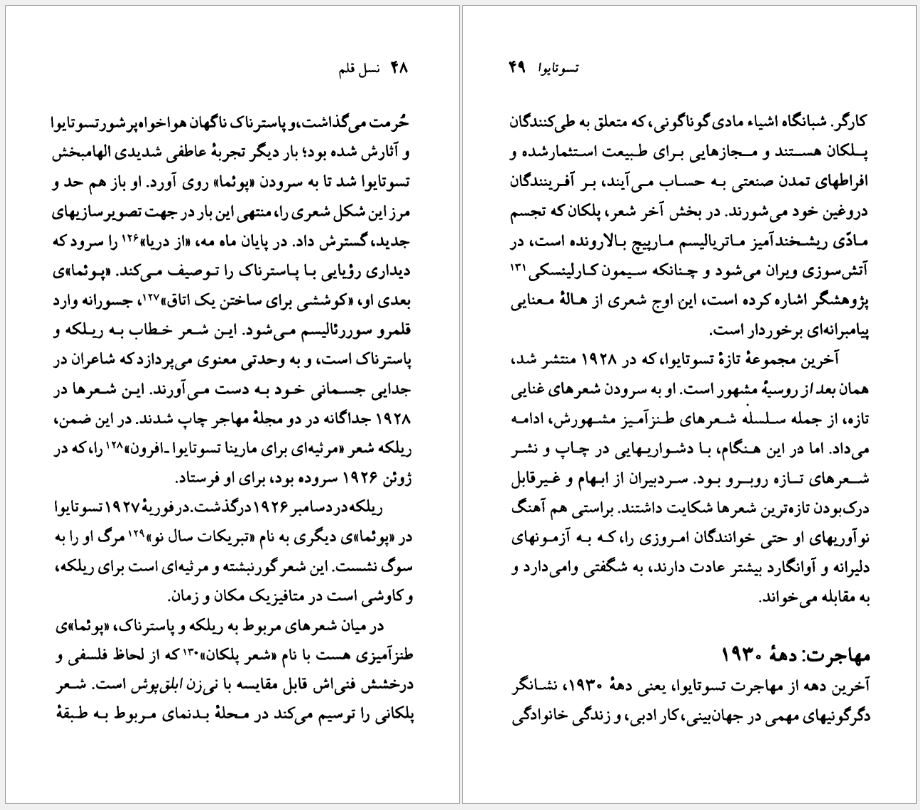 ۴۸ نسل قلم
حُرمت می‌گذاشت، و پاسترناک ناگهان هواخواه پر شور تسوتایوا
و آثارش شده بود؛ بار دیگر تجربهٔ عاطفی شدیدی الهامبخش
تسوتایوا شد تا به سرودن «پوئما» روی آورد. او باز هم حد و
مرز این شکل شعری را، منتهی این بار در جهت تصویرسازیهای
جدید، گسترش داد. در پایان ماه مه، «از دریا»۱۲۶ را سرود که
دیداری رؤیایی با پاسترناک را توصیف می‌کند. «پوئما»ی
بعدی او، «کوششی برای ساختن یک اتاق»۱۲۷، جسورانه وارد
قلمرو سوررئالیسم می‌شود. این شعر خطاب به ریلکه و
پاسترناک است، و به وحدتی معنوی می‌پردازد که شاعران در
جدایی جسمانی خود به دست می‌آورند. این شعرها در
۱۹۲۸ جداگانه در دو مجلهٔ مهاجر چاپ شدند. در این ضمن،
ریلکه شعر «مرثیه‌ای برای مارینا تسوتایوا ـ افرون»۱۲۸ را، که در
ژوئن ۱۹۲۶ سروده بود، برای او فرستاد.
ریلکه در دسامبر ۱۹۲۶ درگذشت. در فوریهٔ ۱۹۲۷ تسوتایوا
در «پوئما»ی دیگری به نام «تبریکات سال نو»۱۲۹ مرگ او را به
سوگ نشست. این شعر گورنبشته و مرثیه‌ای است برای ریلکه،
و کاوشی است در متافیزیک مکان و زمان.
در میان شعرهای مربوط به ریلکه و پاسترناک، «پوئما»ی
طنزآمیزی هست با نام «شعر پلکان»۱۳۰ که از لحاظ فلسفی و
درخشش فنی‌اش قابل مقایسه با نی‌زن ابلق‌پوش است. شعر
پلکانی را توسیم می‌کند در محلهٔ بدنمای مربوط به طبقهٔ
تسوتایوا ۴۹
کارگر. شبانگاه اشیاء مادی گوناگونی، که متعلق به طی‌کنندگان
پلکان هستند و مجازهایی برای طبیعت استثمارشده و
افراطهای تمدن صنعتی به حساب می‌آیند، بر آفرینندگان
دروغین خود می‌شورند. در بخش آخر شعر، پلکان که تجسم
مادّی ریشخندآمیز ماتریالیسم مارپیچ بالارونده است، در
آتش‌سوزی ویران می‌شود و چنانکه سیمون کارلینسکی۱۳۱
پژوهشگر اشاره کرده است، این اوج شعری از هالهٔ معنایی
پیامبرانه‌ای برخوردار است.
آخرین مجموعهٔ تازهٔ تسوتایوا، که در ۱۹۲۸ منتشر شد،
همان بعد از روسیهٔ مشهور است. او به سرودن شعرهای غنایی
تازه، از جمله سلسلهٔ شعرهای طنزآمیز مشهورش، ادامه
می‌داد. اما در این هنگام، با دشواریهایی در چاپ و نشر
شعرهای تازه روبرو بود. سردبیران از ابهام و غیرقابل
درک‌بودن تازه‌ترین شعرها شکایت داشتند. براستی هم آهنگ
نوآوریهای او حتی خوانندگان امروزی را، که به آزمونهای
دلیرانه و آوانگارد بیشتر عادت دارند، به شگفتی وامی‌دارد و
به مقابله می‌خواند.
مهاجرت: دههٔ ۱۹۳۰
آخرین دهه از مهاجرت تسوتایوا، یعنی دههٔ ۱۹۳۰، نشانگر
دگرگونیهای مهمی در جهان‌بینی، کار ادبی، و زندگی خانوادگی